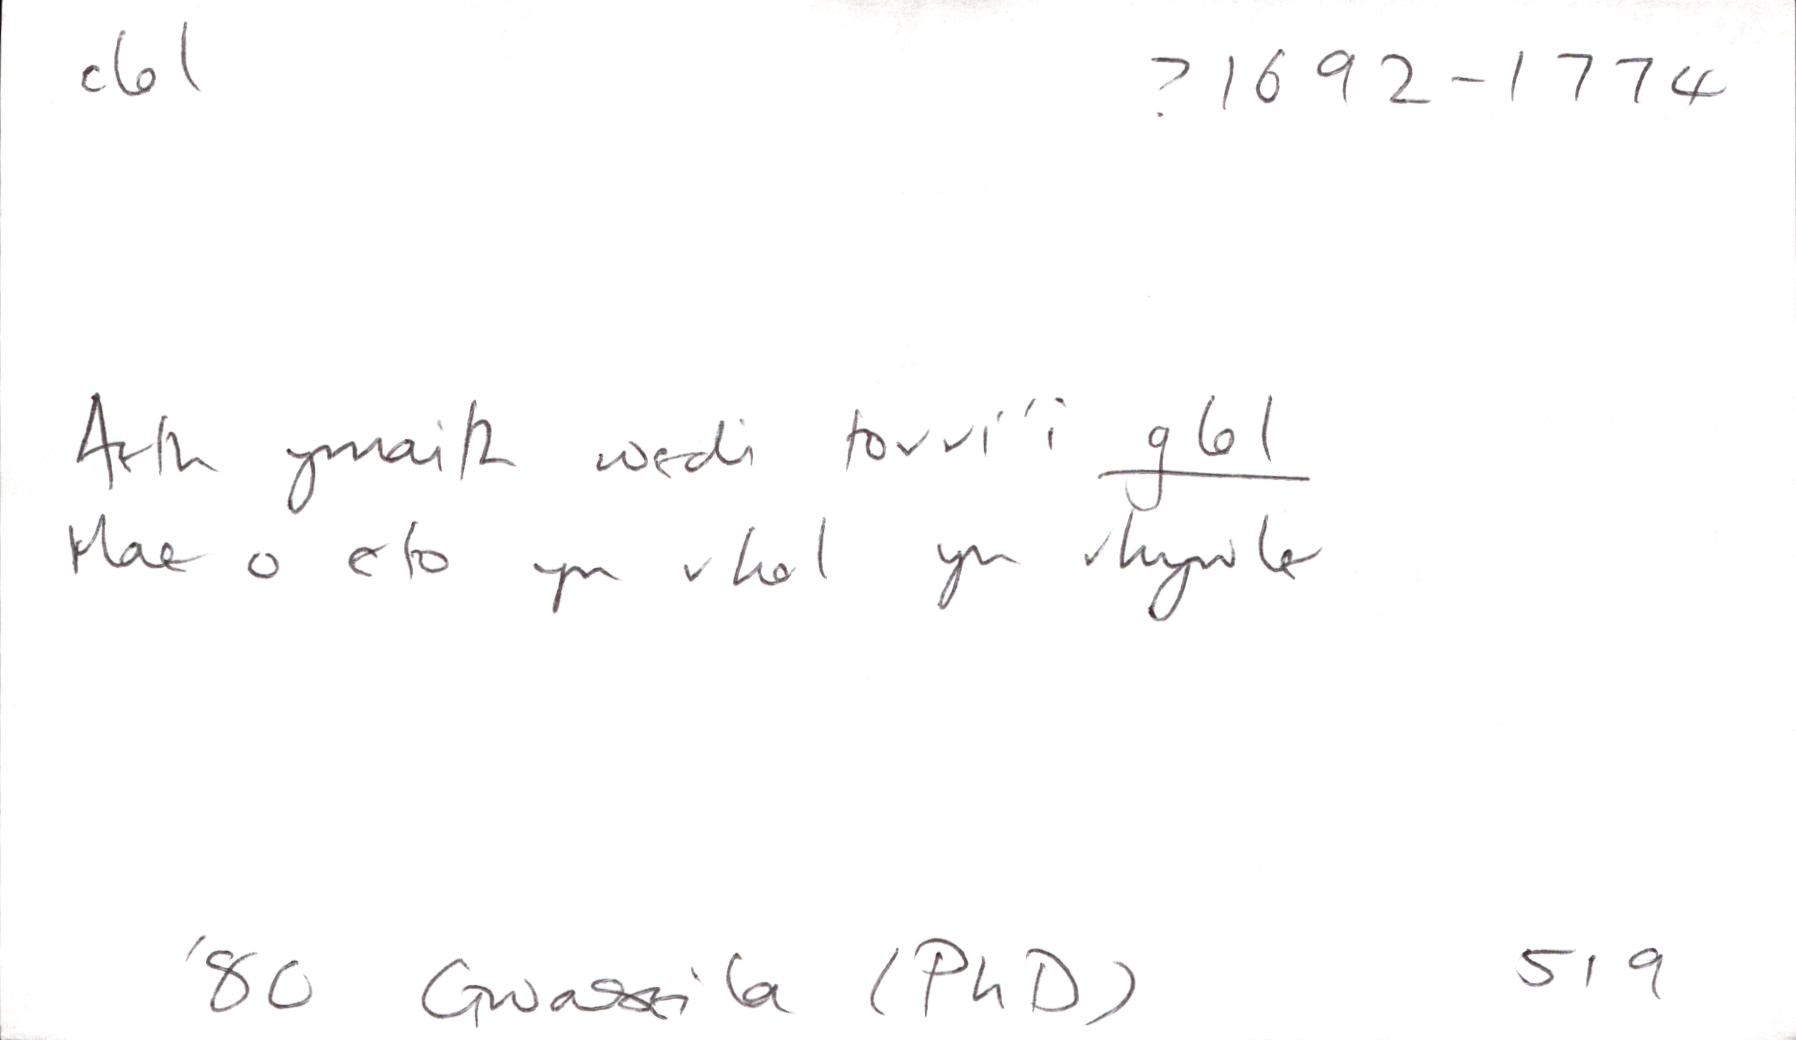 cbl ?1692-1774
Aeth ymaith wedi torri'i gbl
Mae o eto yn rhol yn rhywle
'80 Gwasila (PhD) 519